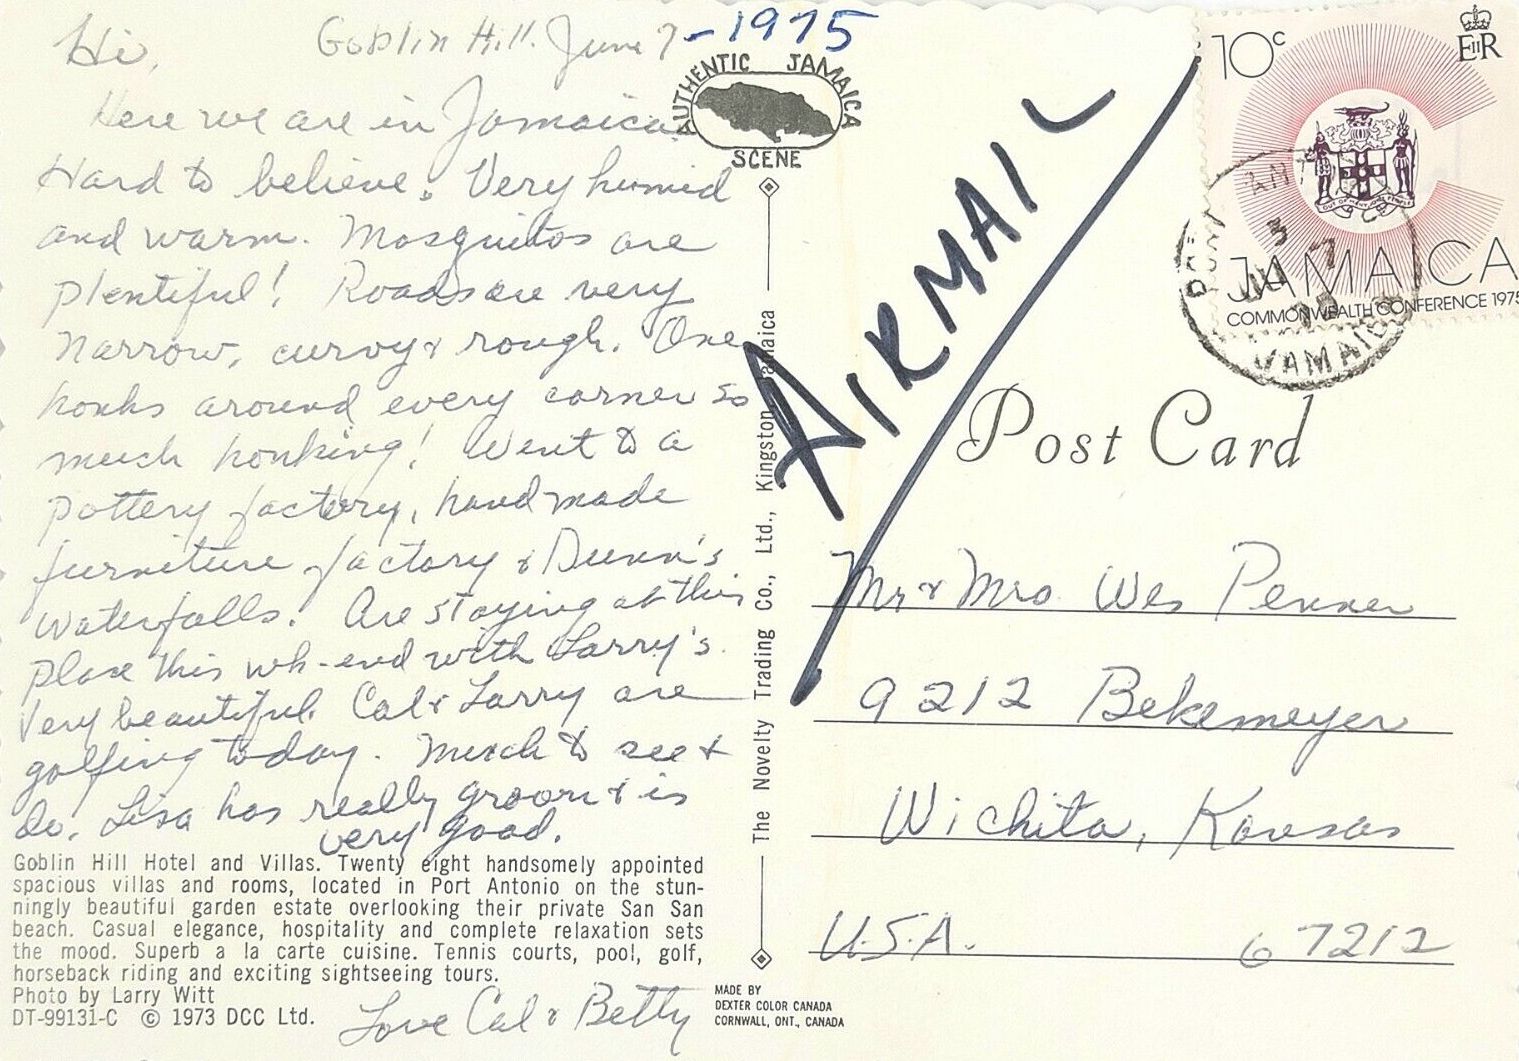 Goblin Hill. June 7-1975
Hi,
Here we are in Jamaica
Hard to believe. Very humid
and warm. Mosquitos are
plentiful! Roads are very
narrow, curvy & rough. One
honks around every corner so
much honking! Went to a
pottery factory, handmade
furniture factory & Dunn's
waterfalls. Are staying at this
place this wk-end with Larry's.
Very beautiful. Cal & Larry are
golfing today. Much to see &
do. Lisa has really grown & is
very good.
Goblin Hill Hotel and Villas. Twenty eight handsomely appointed
spacious villas and rooms, located in Port Antonio on the stun-
ningly beautiful garden estate overlooking their private San San
beach. Casual elegance, hospitality and complete relaxation sets
the mood. Superb a la carte cuisine. Tennis courts, pool, golf,
horseback riding and exciting sightseeing tours.
Photo by Larry Witt
DT-99131-C © 1973 DCC Ltd.
Love Cal & Betty
AUTHENTIC JAMAICA
SCENE
The Novelty Trading Co., Ltd., Kingston, Jamaica
MADE BY
DEXTER COLOR CANADA
CORNWALL, ONT., CANADA
AIRMAIL
10c
EIIR
OUT OF MANY, ONE PEOPLE
JAMAICA
COMMONWEALTH CONFERENCE 1975
JAMAICA
Post Card
Mr & Mrs. Wes Penner
9212 Bekemeyer
Wichita, Kansas
U.S.A. 67212